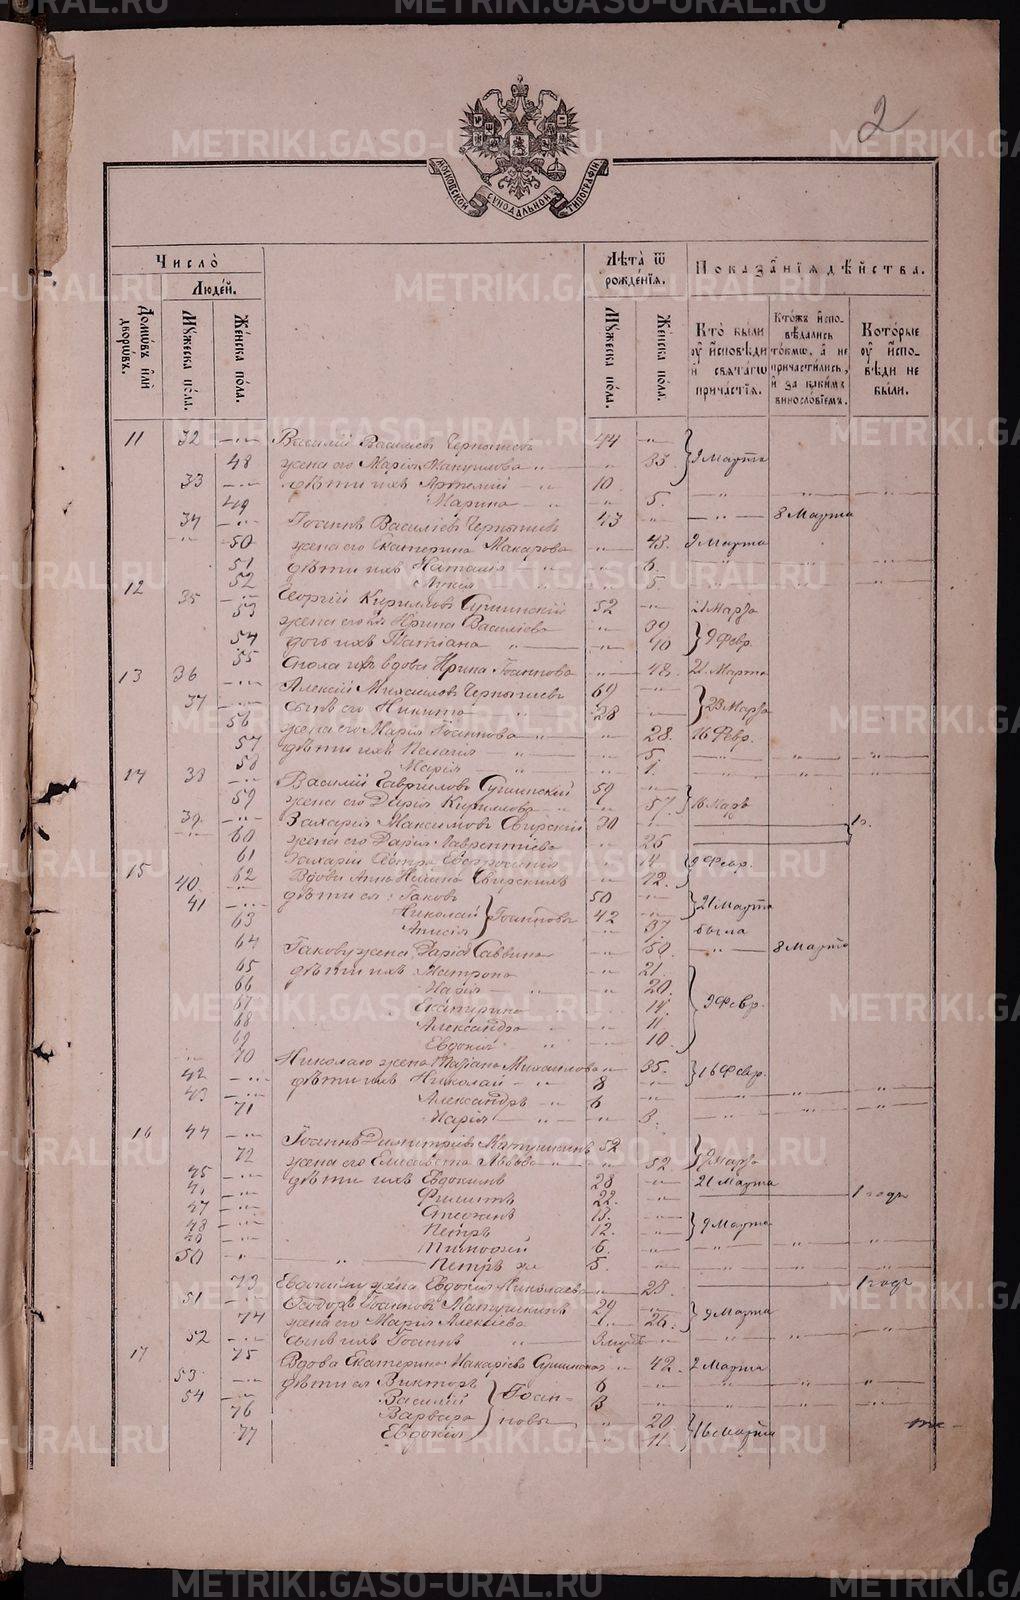 2
МОСКОВСКОЙ СѴНОДАЛЬНОЙ ТИПОГРАФІИ
Число̀
Людéй.
Домѡ́въ и҆лѝ дворѡ́въ.
Мꙋ́жеска по́ла.
Жéнска по́ла.
Лѣ́та ѿ рождéнїѧ.
Мꙋ́жеска по́ла.
Жéнска по́ла.
Показа̑нїѧ дѣ́йства.
Кто̀ бы́ли ᲂу҆ и҆́сповѣди и҆ свѧта́гѡ причáстїѧ.
Кто́жъ и҆спо-
вѣ́дались
то́кмѡ, а҆ не
причасти́лись,
и҆ за каки́мъ
винослóвїемъ.
Кото́рые ᲂу҆ и҆спо-
вѣди не
бы́ли.
11 32 Василій Васильевъ Чернышевъ 44
48 жена его Марія Мануилова 33. 9 Марта
33 дѣти ихъ Артемій 10.
49 Марина 5.
34 Іоаннъ Василіевъ Чернышевъ 43 8 Марта
50 жена его Екатерина Макарова 43. 9 Марта
51 дѣти ихъ Наталія 6.
52 5.
12 35 Георгій Кириловъ Сушинскій 52 21 Марта
53 жена его Ирина Василіева 39
54 дочь ихъ Татіана 10 9 Февр.
55 вдова Ирина Іоаннова 48. 21 Марта
13 36 Алексій Михаиловъ Чернышевъ 69
37 сынъ его Никита 28 23 Марта
56 жена его Марія Іоаннова 28. 16 Февр.
57 дѣти ихъ Пелагія 5.
58 Марія 1.
14 38 Василій Гавриловъ Сушинскій 59
59 жена его Дарія Кириллова 57. 16 Марта
39 Захарія Максимовъ Свирскій 30 1 г.
60 жена его Дарія Лаврентіева 25
61 Захаріи сестра Евфросинія 14 9 Февр.
15 62 Вдова Анна Свирская 72.
40. дѣти ея: Іаковъ 50 21 Марта
41 Николай } Іоанновы 42
63 Анисія 37. была
64 Іакову жена Дарія Саввина 50. 8 Марта
65 дѣти ихъ Матрона 21.
66 Марія 20.
67 Екатерина 14. 9 Февр.
68 Александра 11
69 Евдокія 10.
70 Николаю жена Татіана Михаилова 35. 16 Февр.
42 дѣти ихъ Николай 8
43 Александръ 6
71 Марія 3.
16 44 Іоаннъ Димитріевъ Матушкинъ 52
72 жена его Елисавета Львова 52. 9 Марта
45 дѣти ихъ Евдокимъ 28 21 Марта
Филиппъ 22. 1 годъ
47 Стефанъ 13.
48 Петръ 12. 9 Марта
49 Тимофей 6.
50 Петръ же 5.
73 Евдокиму жена Евдокія Николаева 28. 1 годъ
51 Ѳеодоръ Іоанновъ Матушкинъ 29 9 Марта
74 жена его Марія Алексіева 26.
52 сынъ ихъ Іоаннъ
17 75 Вдова Екатерина Макарова Сушинская 42. 2 Марта
53 дѣти ея Викторъ 6
54 Василій } Іоан- 3
76 Варвара новы 20
77 Евдокія 11 16 Марта
METRIKI.GASO-URAL.RU